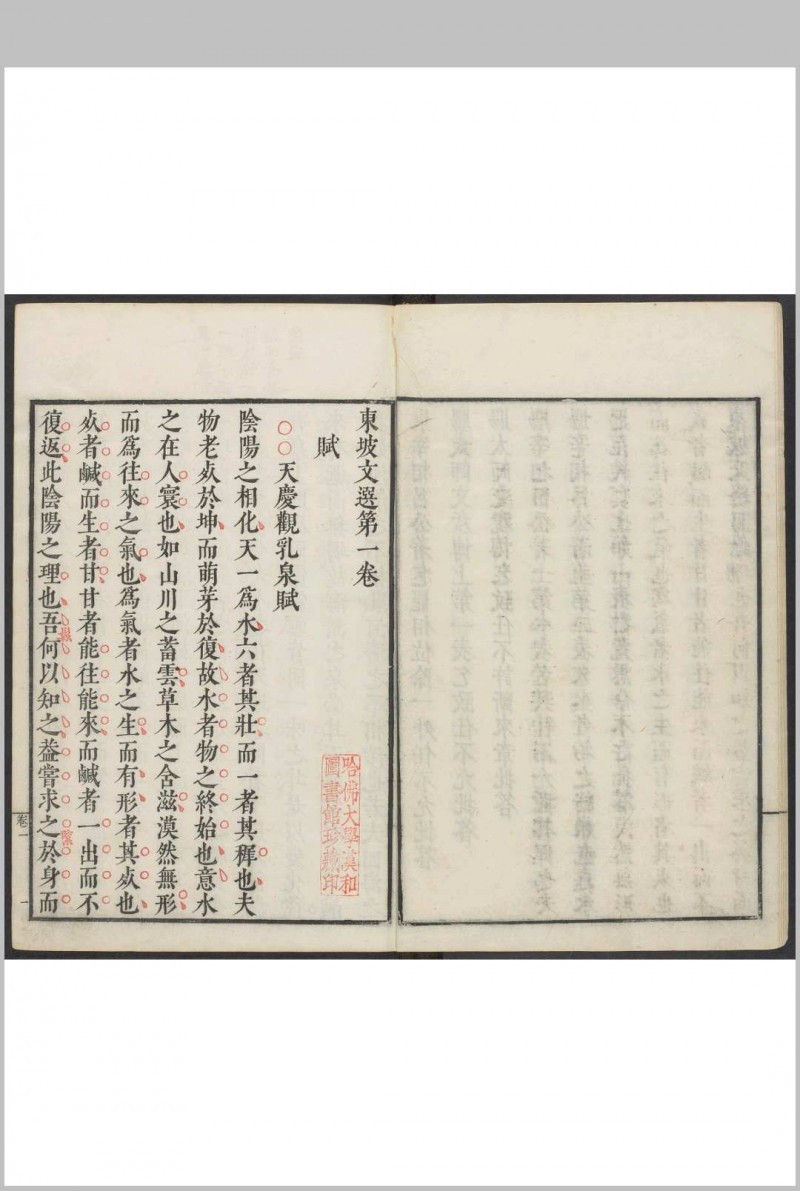 東坡文選第一卷
賦
天慶觀乳泉賦
陰陽之相化天一爲水六者其壯而一者其穉也夫
物老歿於坤而萌芽於復故水者物之終始也意水
之在人寰也如山川之蓄雲草木之含滋漠然無形
而爲往來之氣也爲氣者水之生而有形者其歿也
歿者鹹而生者甘甘者能往能來而鹹者一出而不
復返此陰陽之理也吾何以知之葢嘗求之於身而
卷一
一
哈佛大學漢和
圖書館珍藏印